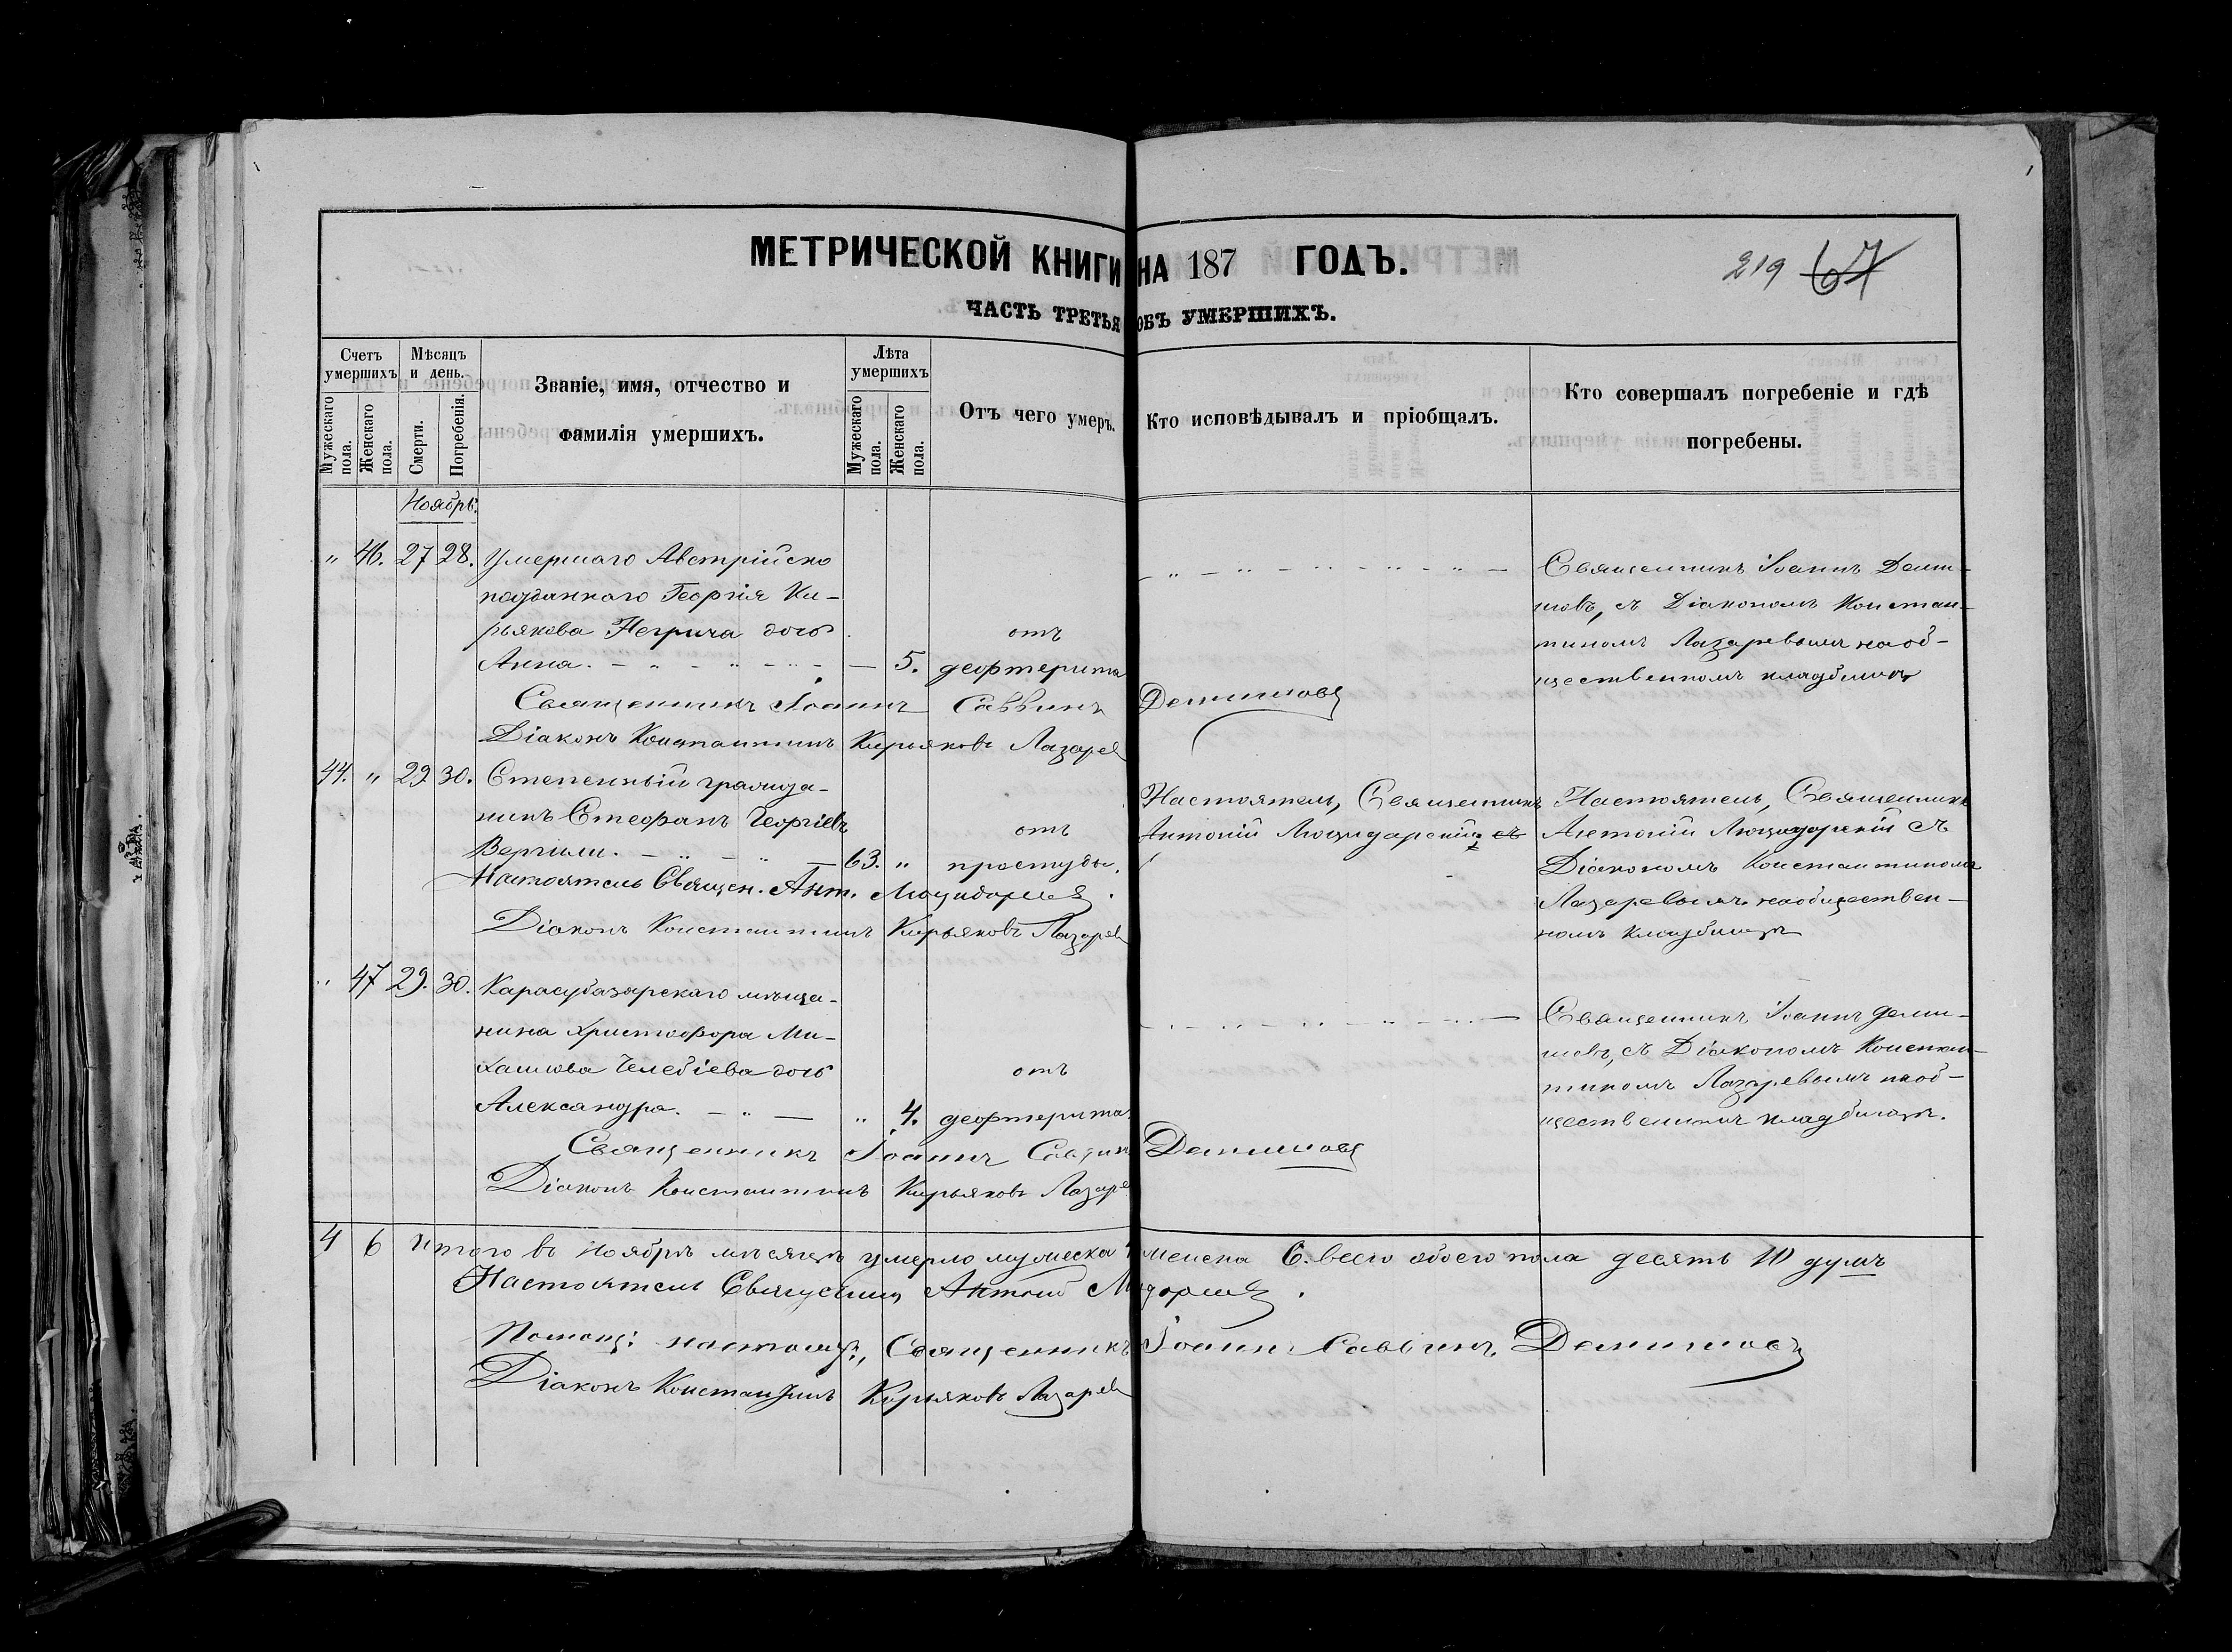 МЕТРИЧЕСКОЙ КНИГИ НА 187 ГОДЪ.
219 67
ЧАСТЬ ТРЕТЬЯ ОБЪ УМЕРШИХЪ.
Счетъ умершихъ
Мужескаго пола.
Женскаго пола.
Мѣсяцъ и день.
Смерти.
Погребенія.
Званіе, имя, отчество и
фамилія умершихъ.
Лѣта умершихъ
Мужескаго пола.
Женскаго пола.
Отъ чего умеръ.
Кто исповѣдывалъ и пріобщалъ.
Кто совершалъ погребеніе и гдѣ
погребены.
Ноябрь.
" 46. 27 28. Умершаго Австрійско
подданнаго Георгія Ки-
рьякова Негрича дочь
Анна. - " - " - " - — 5.
отъ
дефтерита
- " - " - " - " - " -
Священникъ Іоаннъ Деми-
шовъ, съ Діакономъ Констан-
тиномъ Лазаревымъ на об-
щественномъ кладбищѣ
Священникъ Іоаннъ Саввинъ
Діаконъ Константинъ Кирьяковъ Лазарев
44. " 29 30. Степенный гражда-
нинъ Стефанъ Георгіевъ
Вергили. - " - " - 63. "
отъ
простуды.
Настоятель, Священникъ
Антоній
Настоятель, Священникъ
Антоній съ
Діакономъ Константиномъ
Лазаревымъ на обществен-
номъ кладбищѣ
Настоятель Священ. Ант.
Діаконъ Константинъ Кирьяковъ Лазарев
" 47 29. 30. Карасубазарскаго мѣща-
нина Христофора Ми-
хайлова Челебіева дочь
Александра. - " — " 4.
отъ
дефтерита.
- " - " - " - " - " -
Священникъ Іоаннъ Деми-
шовъ, съ Діакономъ Констан-
тиномъ Лазаревымъ на об-
щественномъ кладбищѣ.
Священникъ Іоаннъ Саввинъ
Діаконъ Константинъ Кирьяковъ Лазарев
4 6 Итого въ Ноябрѣ мѣсяцѣ умерло мужеска 4 женска 6. всего обоего пола десять 10 душъ
Настоятель Священник Антоній
Помощ: настоят:, Священникъ Іоаннъ Саввинъ
Діаконъ Константинъ Кирьяковъ Лазарев